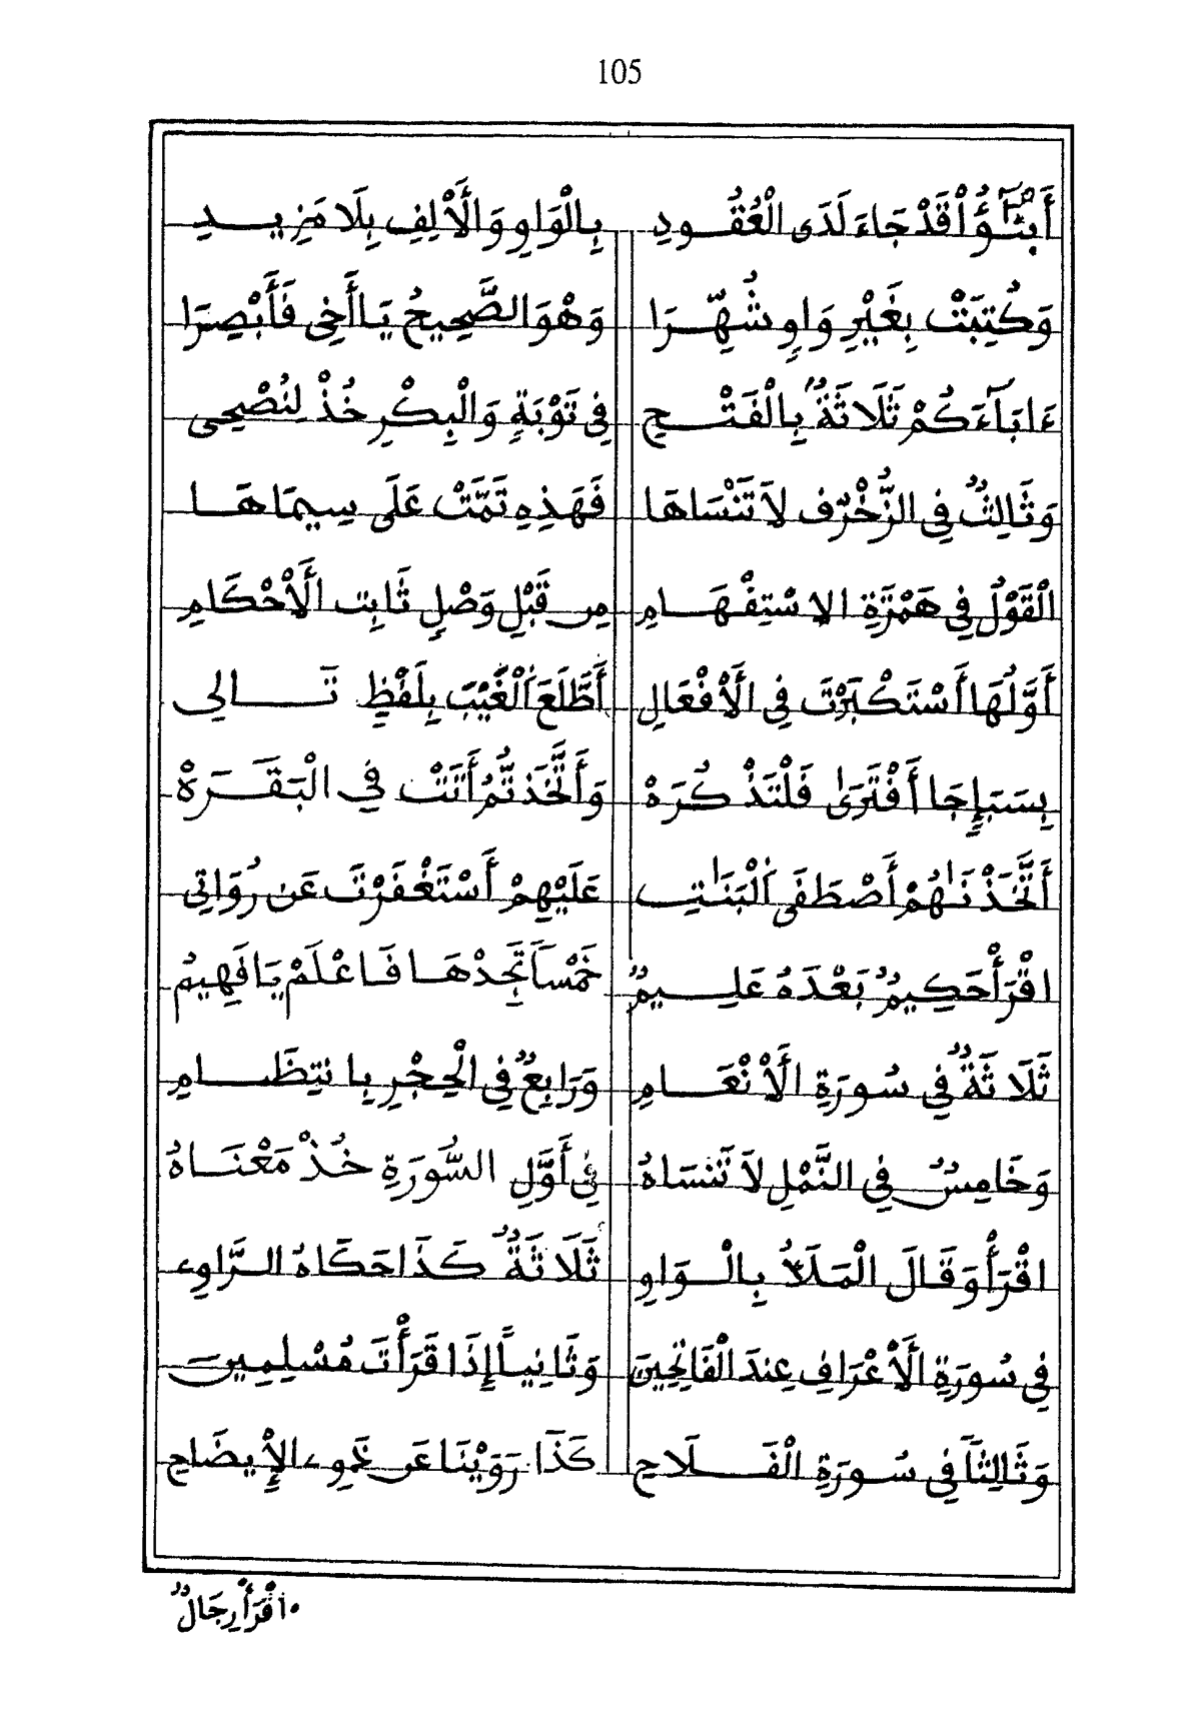 105
أَبْنَٰٓؤُاْ قَدْ جَاءَ لَدَى الْعُقُودِ بِالْوَاوِ وَالْأَلِفِ بِلَا مَزِيدِ
وَكُتِبَتْ بِغَيْرِ وَاوٍ شُهِّرَا وَهْوَ الصَّحِيحُ يَا أَخِي فَأَبْصِرَا
ءَابَآءَكُمْ ثَلَاثَةٌ بِالْفَتْحِ فِي تَوْبَةٍ وَالْبِكْرِ خُذْ لِنُصْحِي
وَثَالِثٌ فِي الزُّخْرُفِ لَا تَنْسَاهَا فَهَذِهِ تَمَّتْ عَلَى سِيمَاهَا
الْقَوْلُ فِي هَمْزَةِ الِاسْتِفْهَامِ مِن قَبْلِ وَصْلٍ ثَابِت الْأَحْكَامِ
أَوَّلُهَا أَسْتَكْبَرْتَ فِي الْأَفْعَالِ أَطَّلَعَ اَلْغَيْبَ بِلَفْظٍ تَالِي
بِسَبَإٍ جَا أَفْتَرَىٰ فَلْتَذْكُرَهْ وَأَتَّخَذتُّمُ أَتَتْ فِي الْبَقَرَهْ
أَتَّخَذْنَٰهُمْ أَصْطَفَى اَلْبَنَاتِ عَلَيْهِمْ أَسْتَغْفَرْتَ عَن رُوَاتِي
اقْرَأْ حَكِيمٌ بَعْدَهُ عَلِيمٌ خَمْساً تَجِدْهَا فَاعْلَمْ يَا فَهِيمُ
ثَلَاثَةٌ فِي سُورَةِ الْأَنْعَامِ وَرَابِعٌ فِي الْحِجْرِ بِانتِظَامِ
وَخَامِسٌ فِي النَّمْلِ لَا تَنسَاهُ فِي أَوَّلِ السُّورَةِ خُذْ مَعْنَاهُ
اقْرَأْ وَقَالَ الْمَلَأُ بِالْوَاوِ ثَلَاثَةٌ كَذَا حَكَاهُ الرَّاوِي
فِي سُورَةِ الْأَعْرَافِ عِندَ الْفَاتِحِينَ وَثَانِياً إِذَا قَرَأْتَ مُسْلِمِينَ
وَثَالِثاً فِي سُورَةِ الْفَلَاحِ كَذَا رَوَيْنَا عَن ذَوِي الْإِيضَاحِ
اقْرَأْ رِجَالٌ